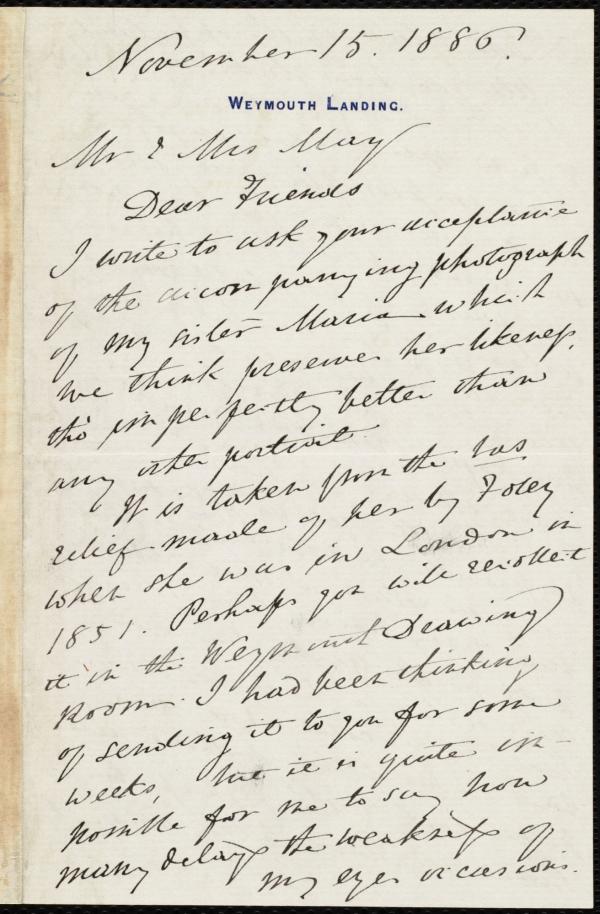 November 15. 1886.
WEYMOUTH LANDING.
Mr & Mrs May
Dear Friends
I write to ask your acceptance
of the accompanying photograph
of my sister Maria which
we think preserves her likeness,
tho' imperfectly better than
any other portrait.
It is taken from the bas
relief made of her by Foley
when she was in London in
1851. Perhaps you will recollect
it in the Weymouth Drawing
Room. I had been thinking
of sending it to you for some
weeks, but it is quite im-
possible for me to say how
many delays the weakness of
my eyes occasions.